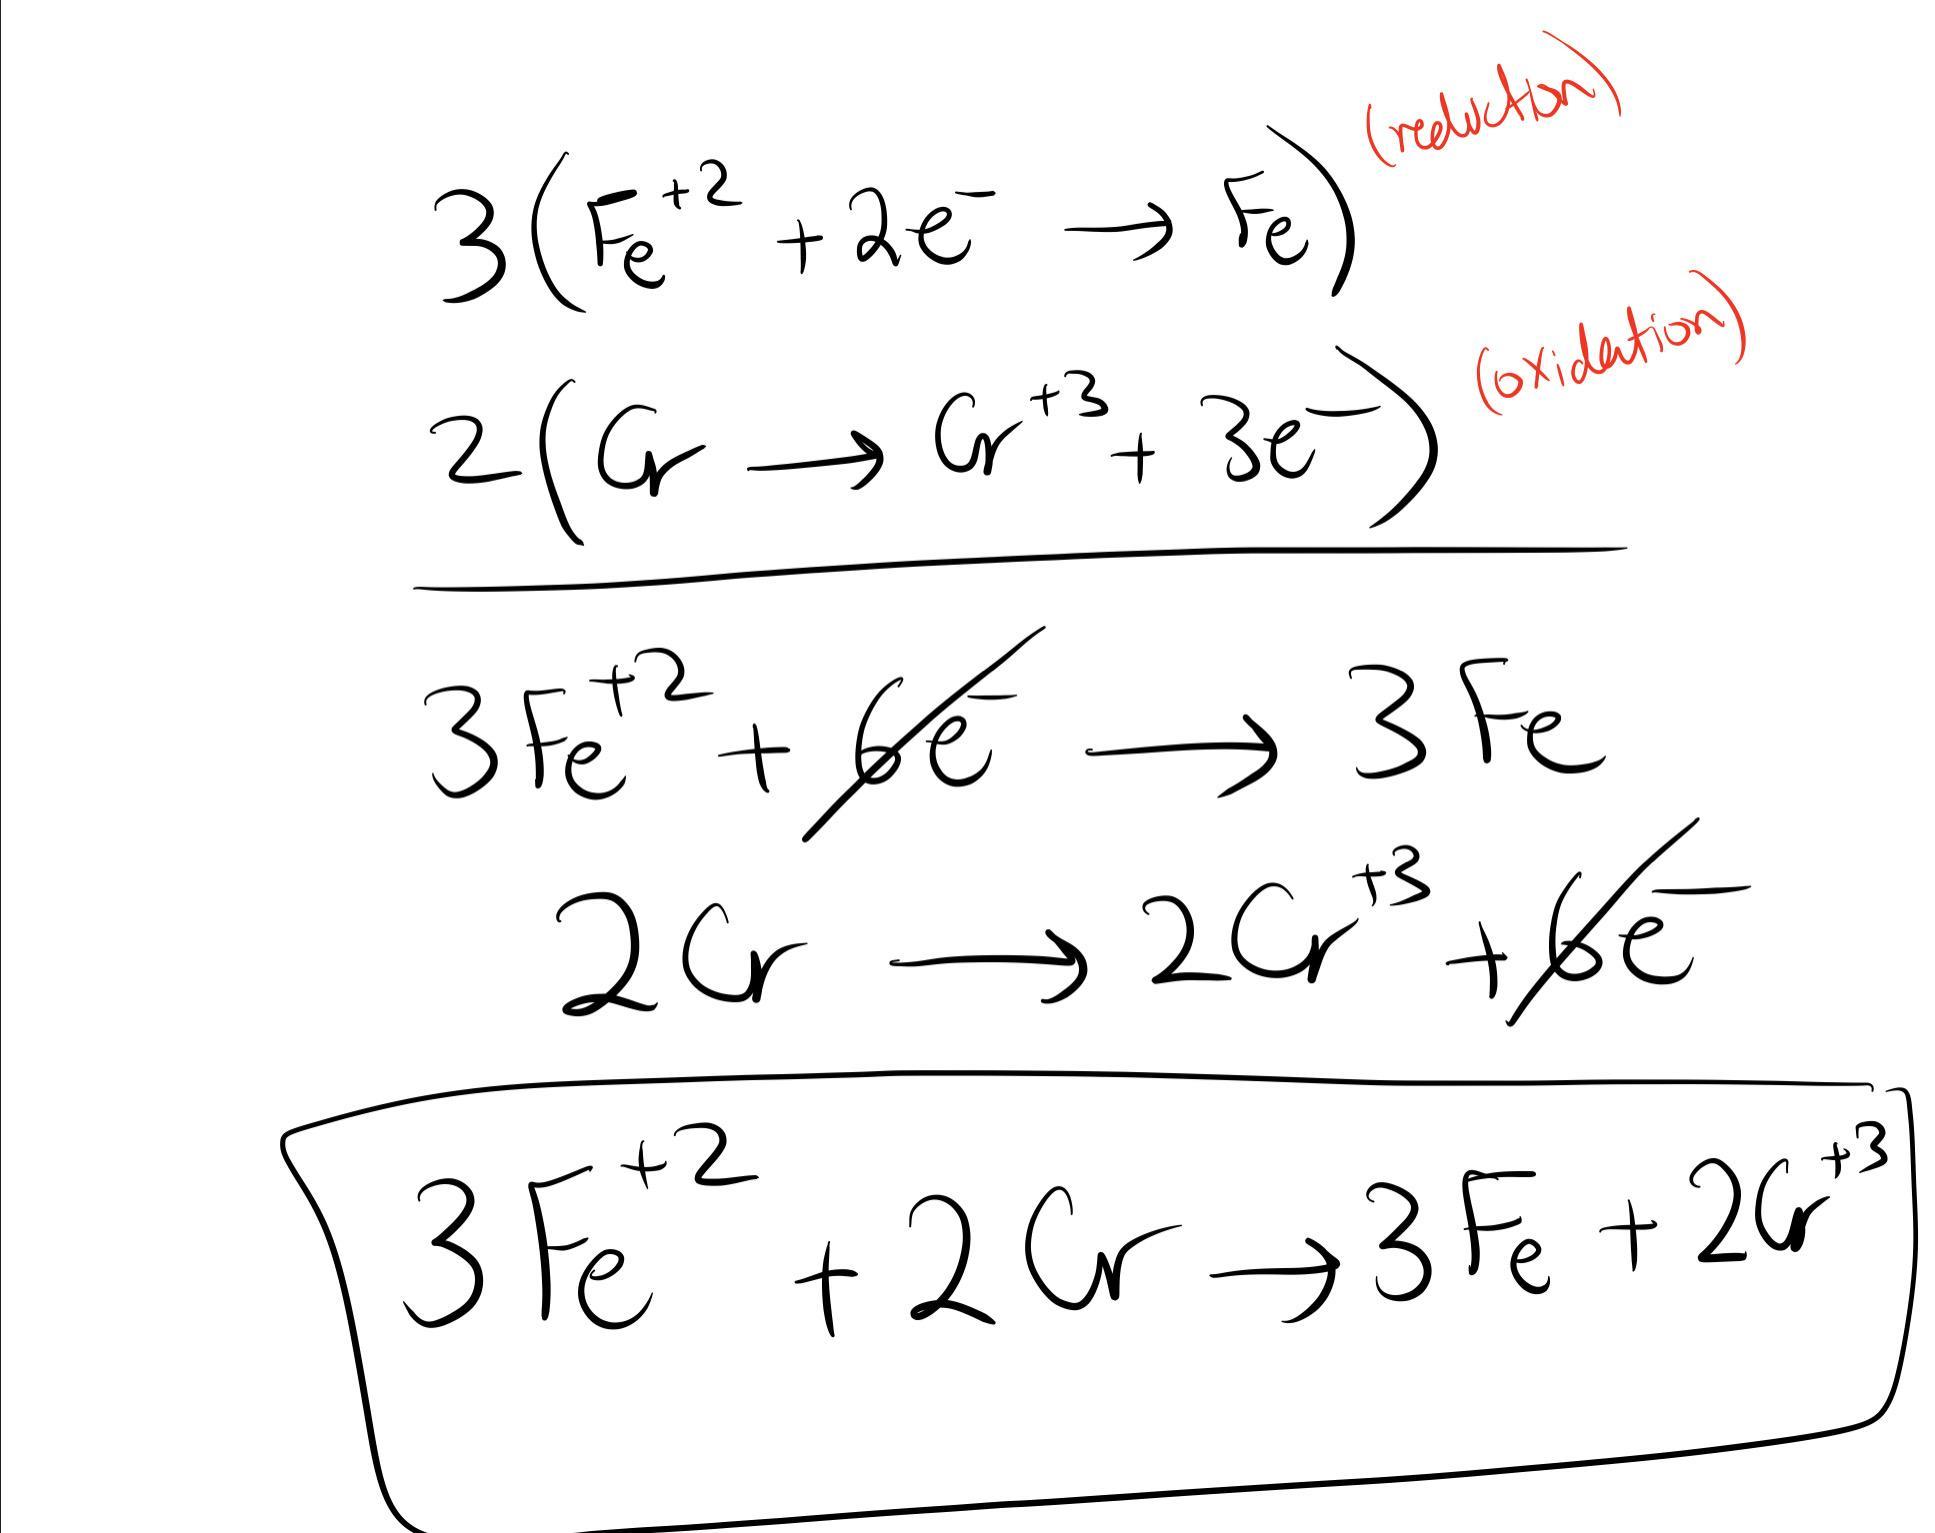 3(Fe⁺² + 2e⁻ → Fe) (reduction)
2(Cr → Cr⁺³ + 3e⁻) (oxidation)
3Fe⁺² + 6e⁻ → 3Fe
2Cr → 2Cr⁺³ + 6e⁻
3Fe⁺² + 2Cr → 3Fe + 2Cr⁺³